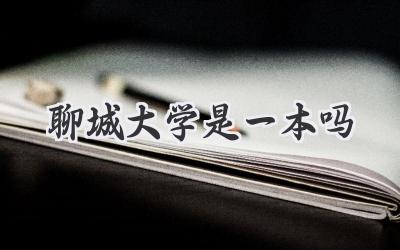 聊城大学是一本吗